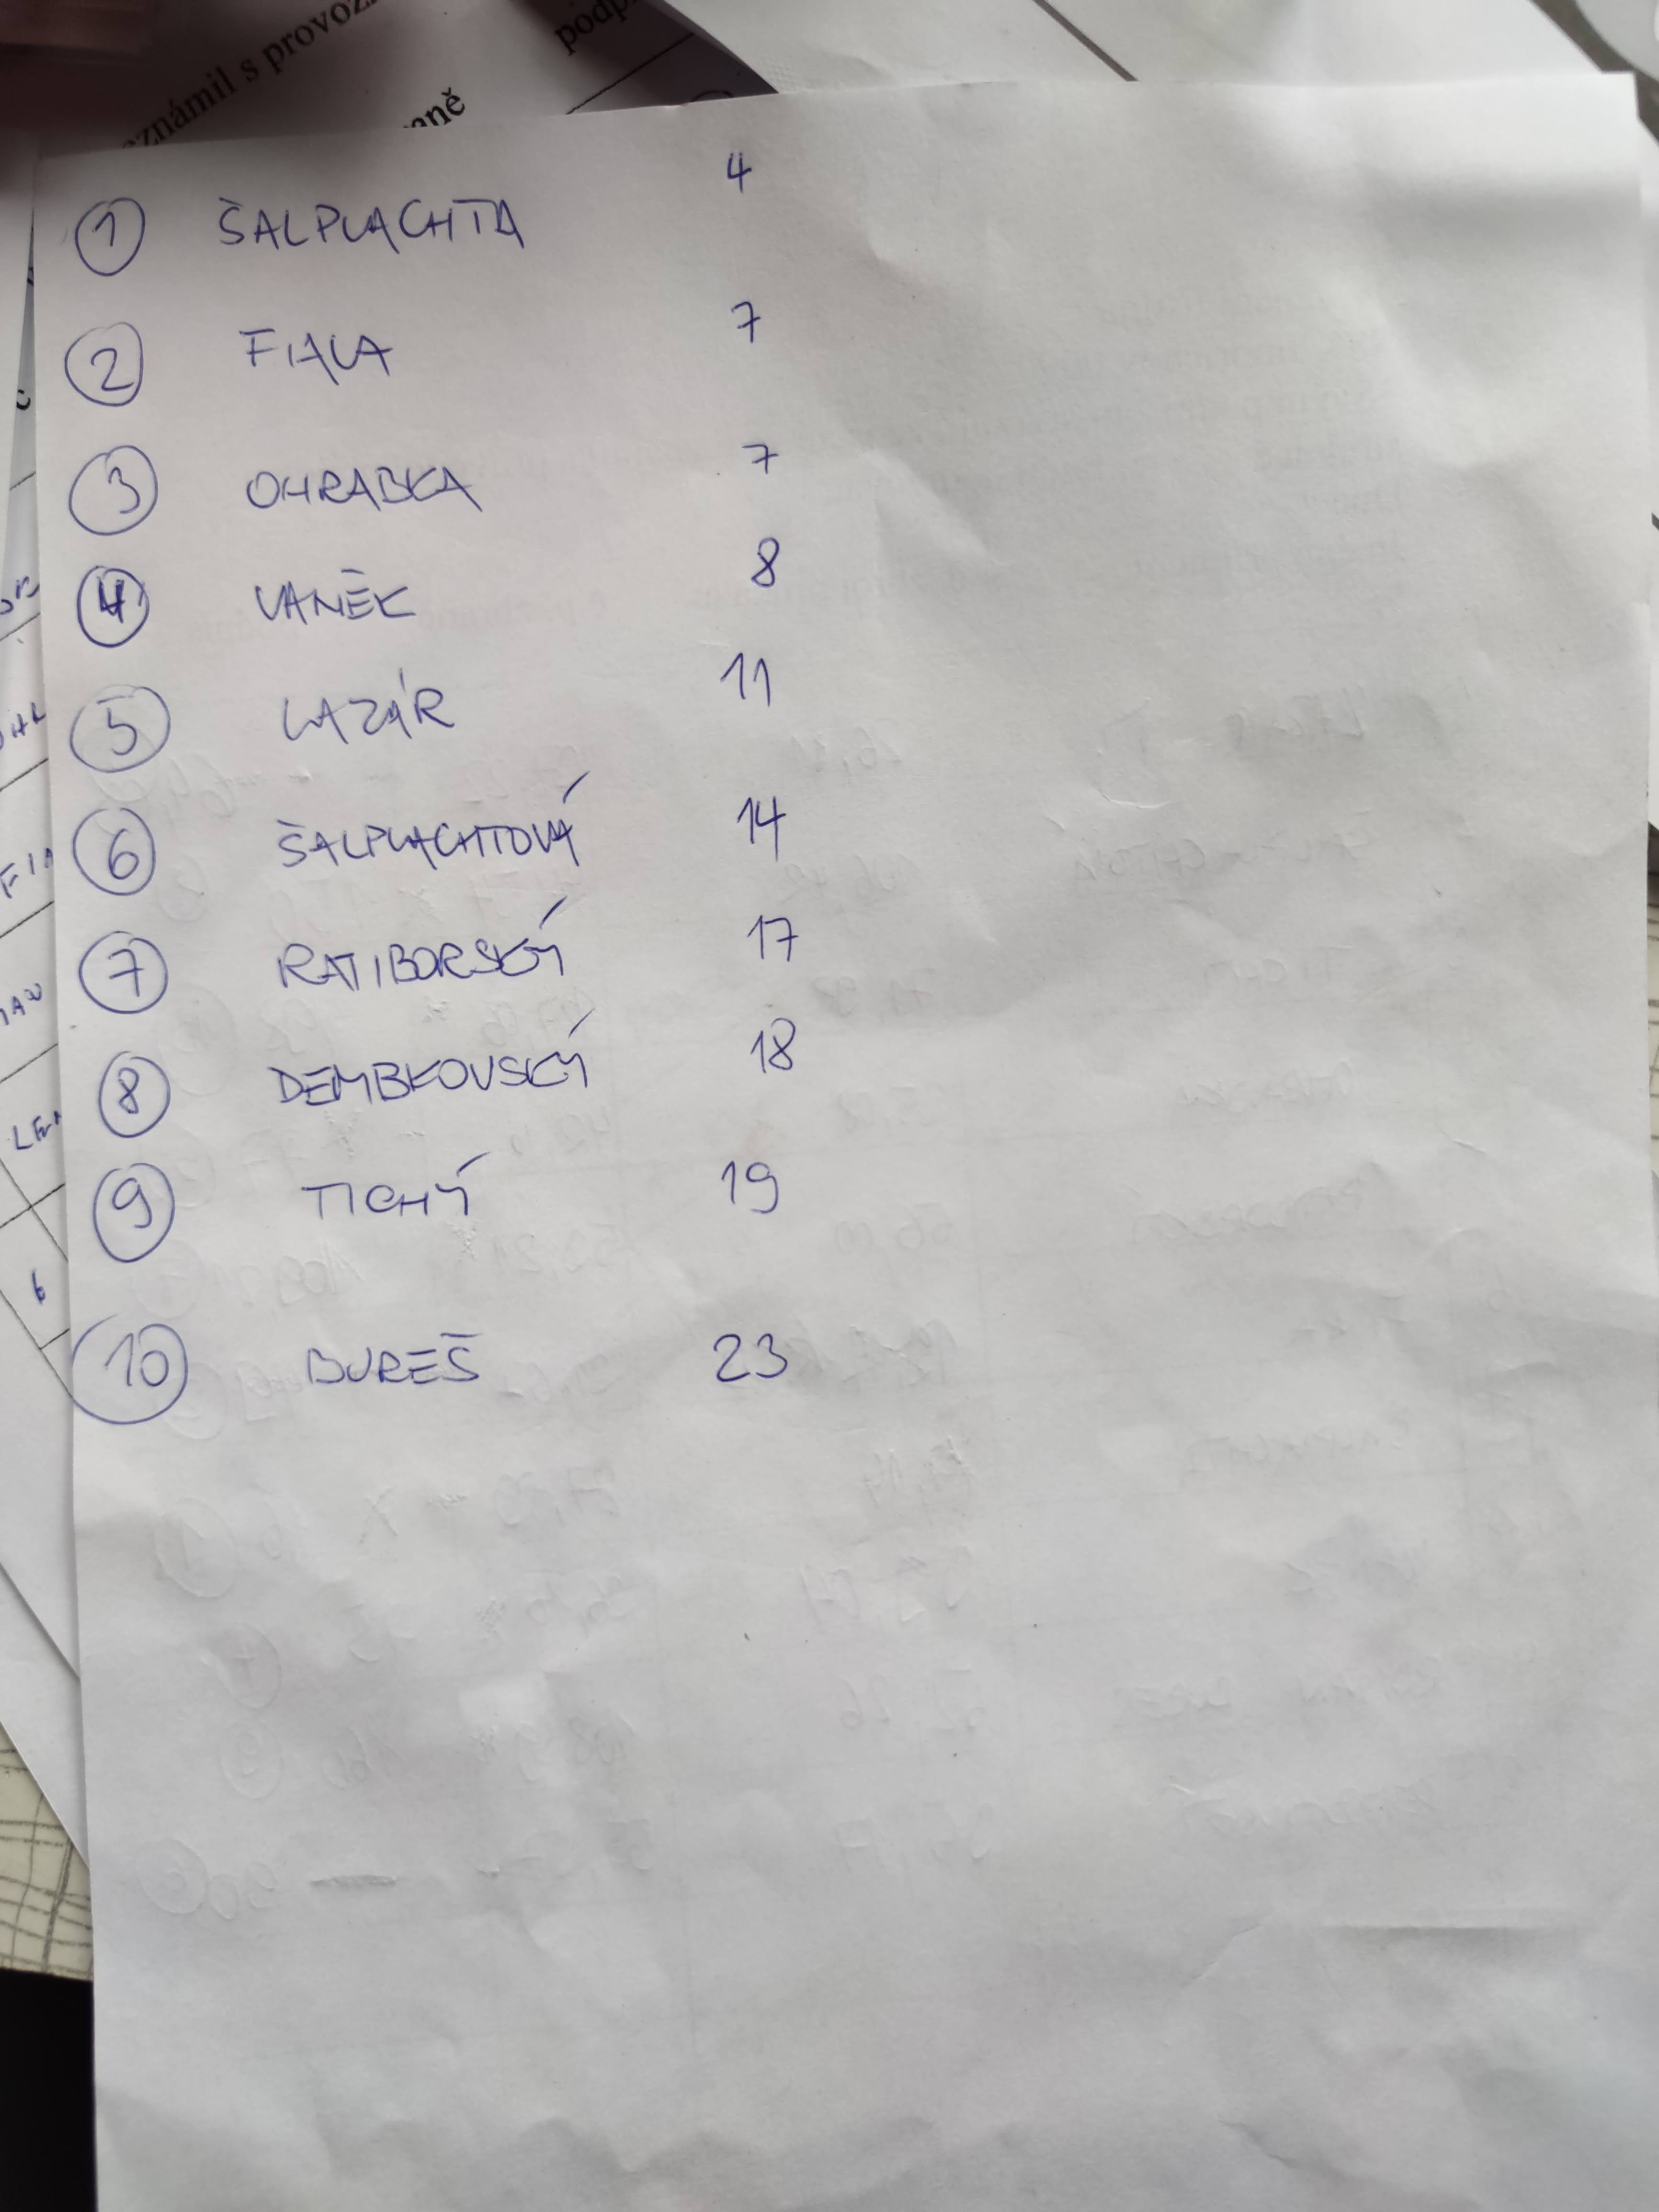 eznámil s provoz
podp
mně
1 ŠALPLACHTA 4
2 FIALA 7
3 OHRABKA 7
4 VANĚK 8
5 LAZÁR 11
6 ŠALPLACHTOVÁ 14
7 RATIBORSKÝ 17
8 DEMBKOVSKÝ 18
9 TICHÝ 19
10 BUREŠ 23